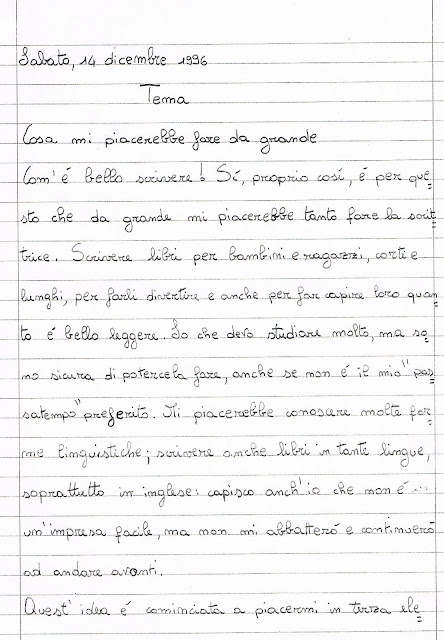 Sabato, 14 dicembre 1996
Tema
Cosa mi piacerebbe fare da grande
Com'é bello scrivere! Sí, proprio cosí, é per que=
sto che da grande mi piacerebbe tanto fare la scrit=
trice. Scrivere libri per bambini e ragazzi, corti e
lunghi, per farli divertire e anche per far capire loro quan=
to é bello leggere. So che devo studiare molto, ma so=
no sicura di potercela fare, anche se non é il mio "pas=
satempo" preferito. Mi piacerebbe conoscere molte for=
me linguistiche; scrivere anche libri in tante lingue,
soprattutto in inglese: capisco anch'io che non é...
un'impresa facile, ma non mi abbatteró e continueró
ad andare avanti.
Quest'idea é cominciata a piacermi in terza ele=